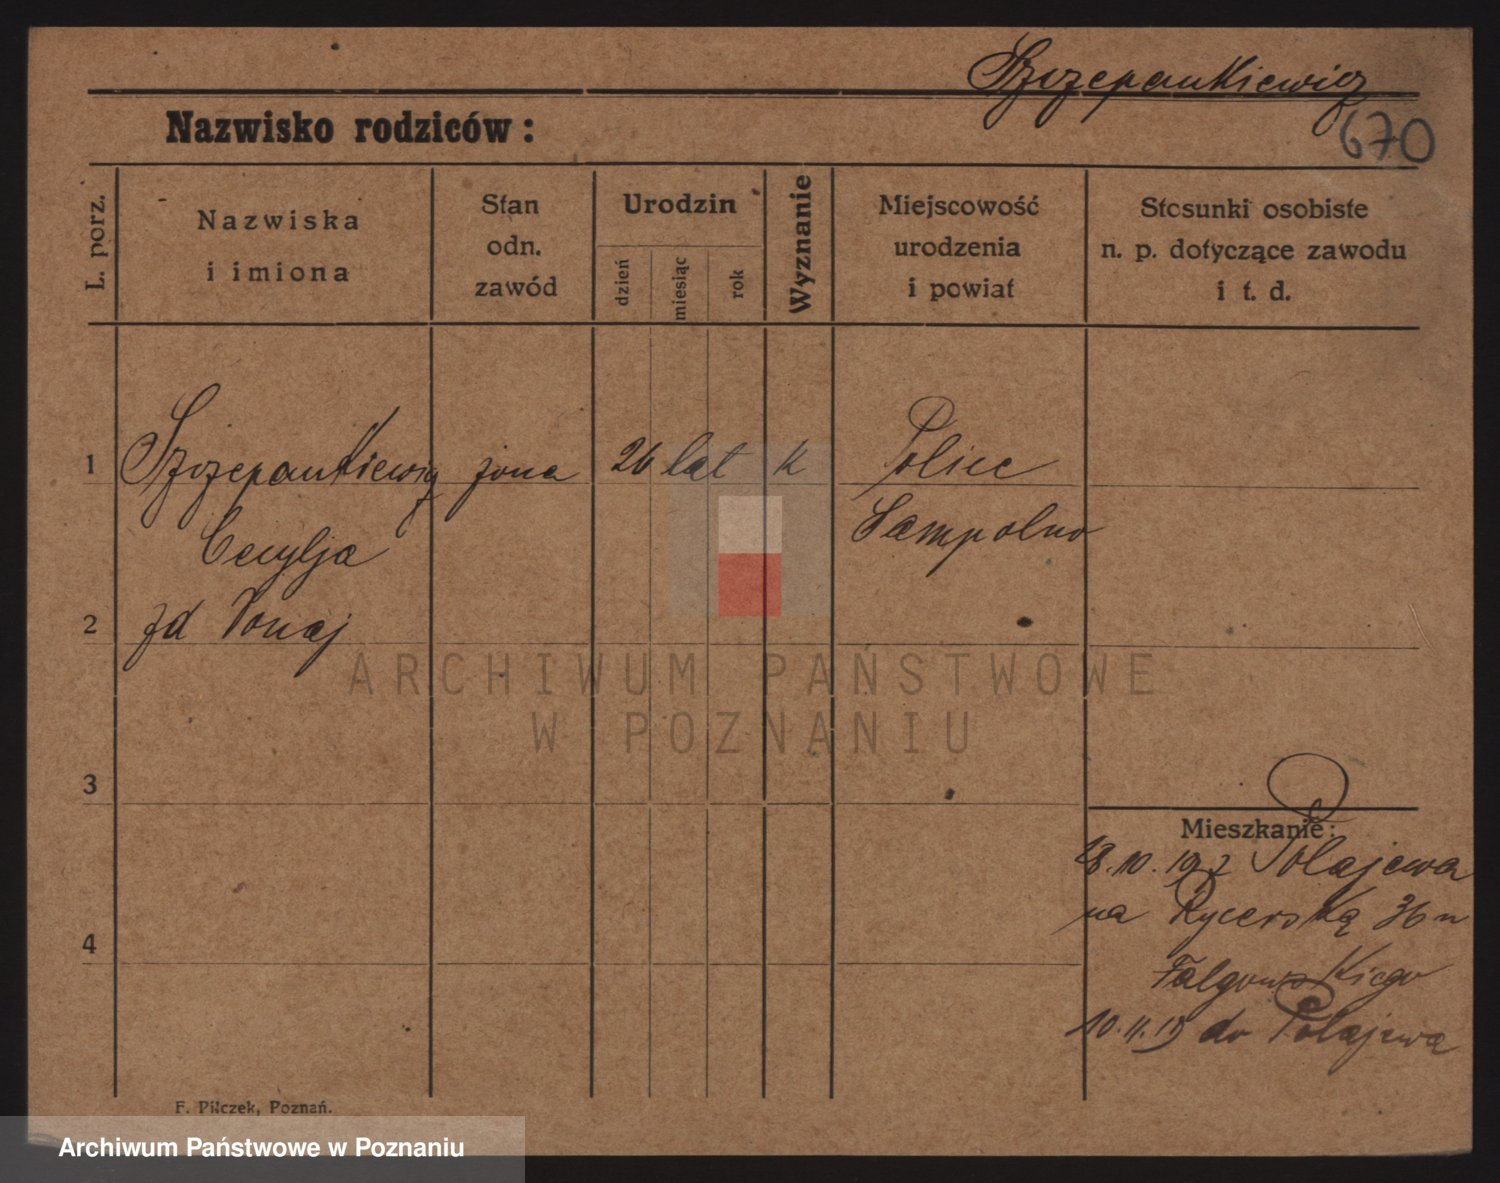 Szczepankiewicz
670
Nazwisko rodziców:
L. porz.
Nazwiska
i imiona
Stan
odn.
zawód
Urodzin
dzień
miesiąc
rok
Wyznanie
Miejscowość
urodzenia
i powiat
Stosunki osobiste
n. p. dotyczące zawodu
i t. d.
1 Szczepankiewicz żona 26 lat k Police
Sempolno
Cecylja
2 zd Donaj
ARCHIWUM PAŃSTWOWE
W POZNANIU
3
Mieszkanie:
28.10.19 z Połajewa
na Rycerską 36 u
4
10.11.19 do Połajewa
F. Pilczek, Poznań.
Archiwum Państwowe w Poznaniu